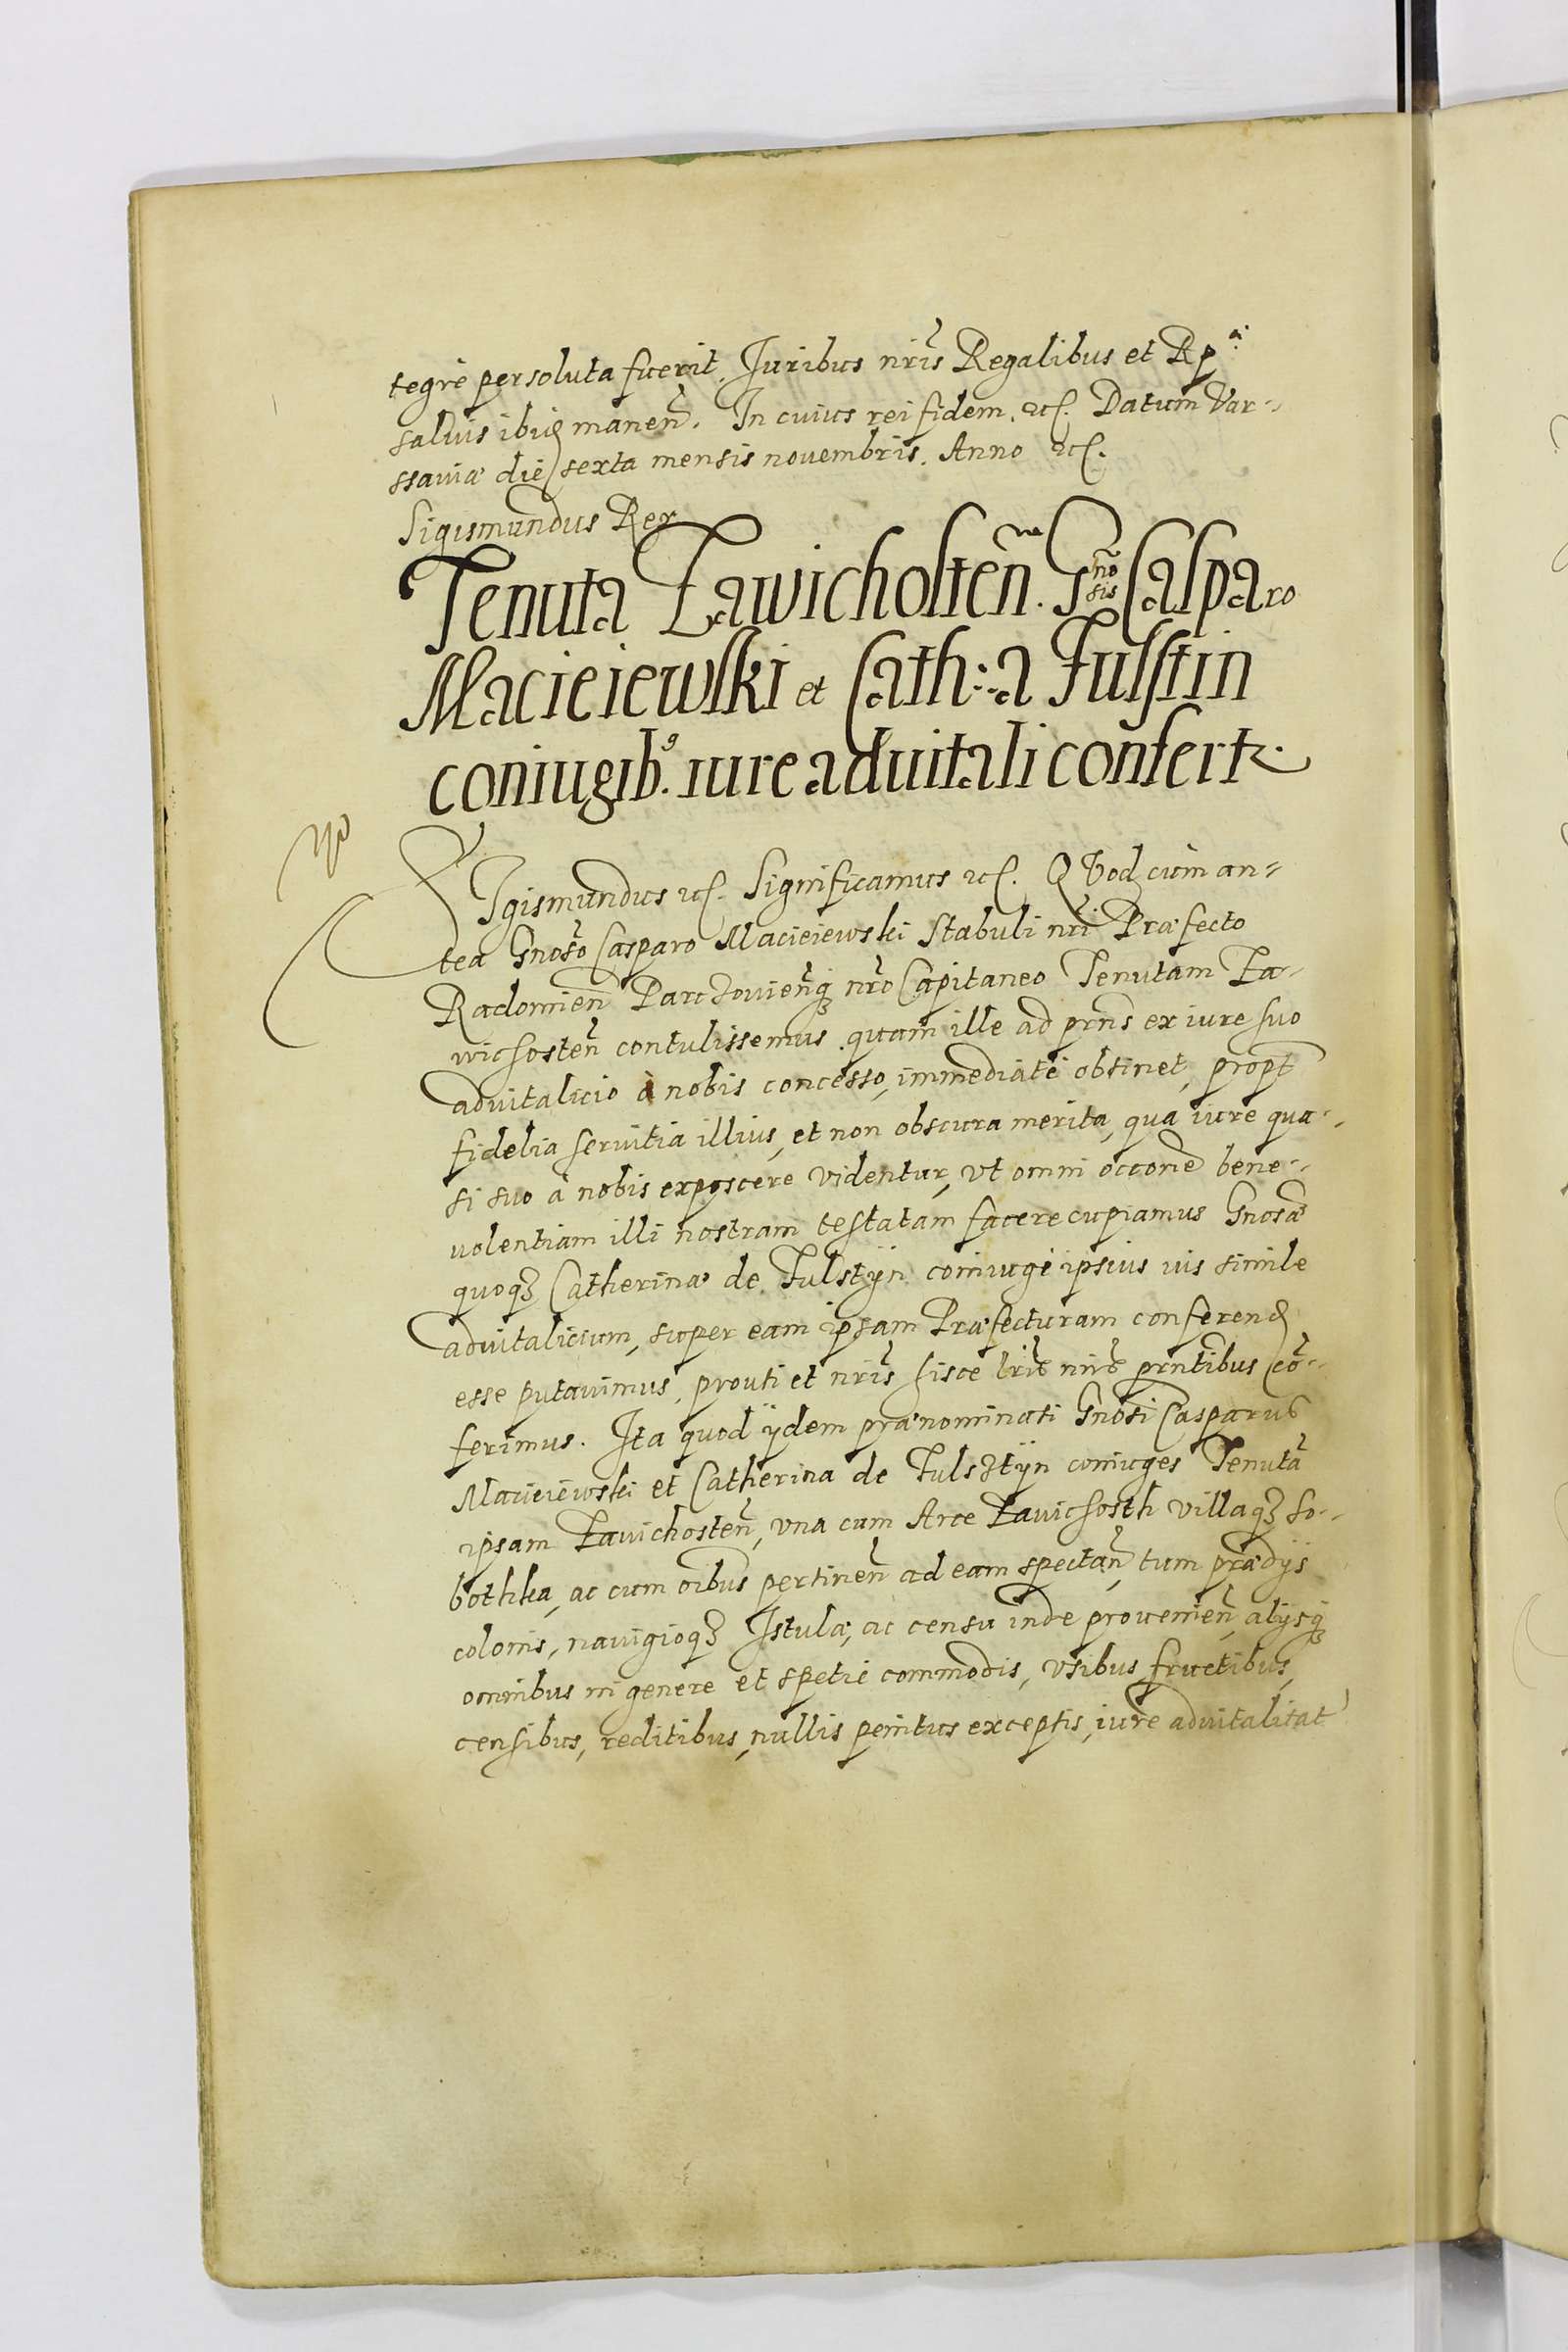 tegrè persoluta fuerit. Juribus nr̃is Regalibus et Rp: ͣͥ
saluis ibiq manen̄. In cuius rei fidem. ꝛc. Datum Var-
ssauiæ die sexta mensis nouembris. Anno ꝛc.
Sigismundus Rex
Tenuta Zawichosten̄. Gnosis Casparo
Macieiewski et Cath:a Fulstin
coniugibꝰ. iure aduitali confertꝛ.
SIgismundus ꝛc. Significamus ꝛc. QVod cum an-
tea Gnoso Casparo Macieiewski Stabuli nr̃i Præfecto
Radomien̄ Parczouien̄qꝫ nr̃o Capitaneo Tenutam Za-
wichosten̄ contulissemus. quam ille ad prn̄s ex iure suo
aduitalicio à nobis concesso, immediatè obtinet, propt
fidelia seruitia illius, et non obscura merita, quæ iure qua-
si suo à nobis exposcere videntur, vt omni occone bene-
uolentiam illi nostram testatam facere cupiamus Gnosæ
quoqꝫ Catherinæ de Fulstÿn coniugi ipsius uis simile
aduitalicium, super eam ipsam Præfecturam conferend
esse putauimus, prouti et nr̃is hisce lr̃is prn̄tibus cõ-
ferimus. Ita quod ÿdem prænominati Gnosi Casparus
Macieiewski et Catherina de Fulsztÿn coniuges Tenutã
ipsam Zauichosten̄, vna cum Arce Zauichosth villaqꝫ So-
bothka, ac cum oĩbus pertinen̄ ad eam spectan̄, tum prædÿs
colonis, nauigioqꝫ Istulæ, ac censu inde prouenien̄, alÿsqꝫ
omnibus in genere et spetie commodis, vsibus fructibus,
censibus, reditibus, nullis penitus exceptis, iure aduitalitat